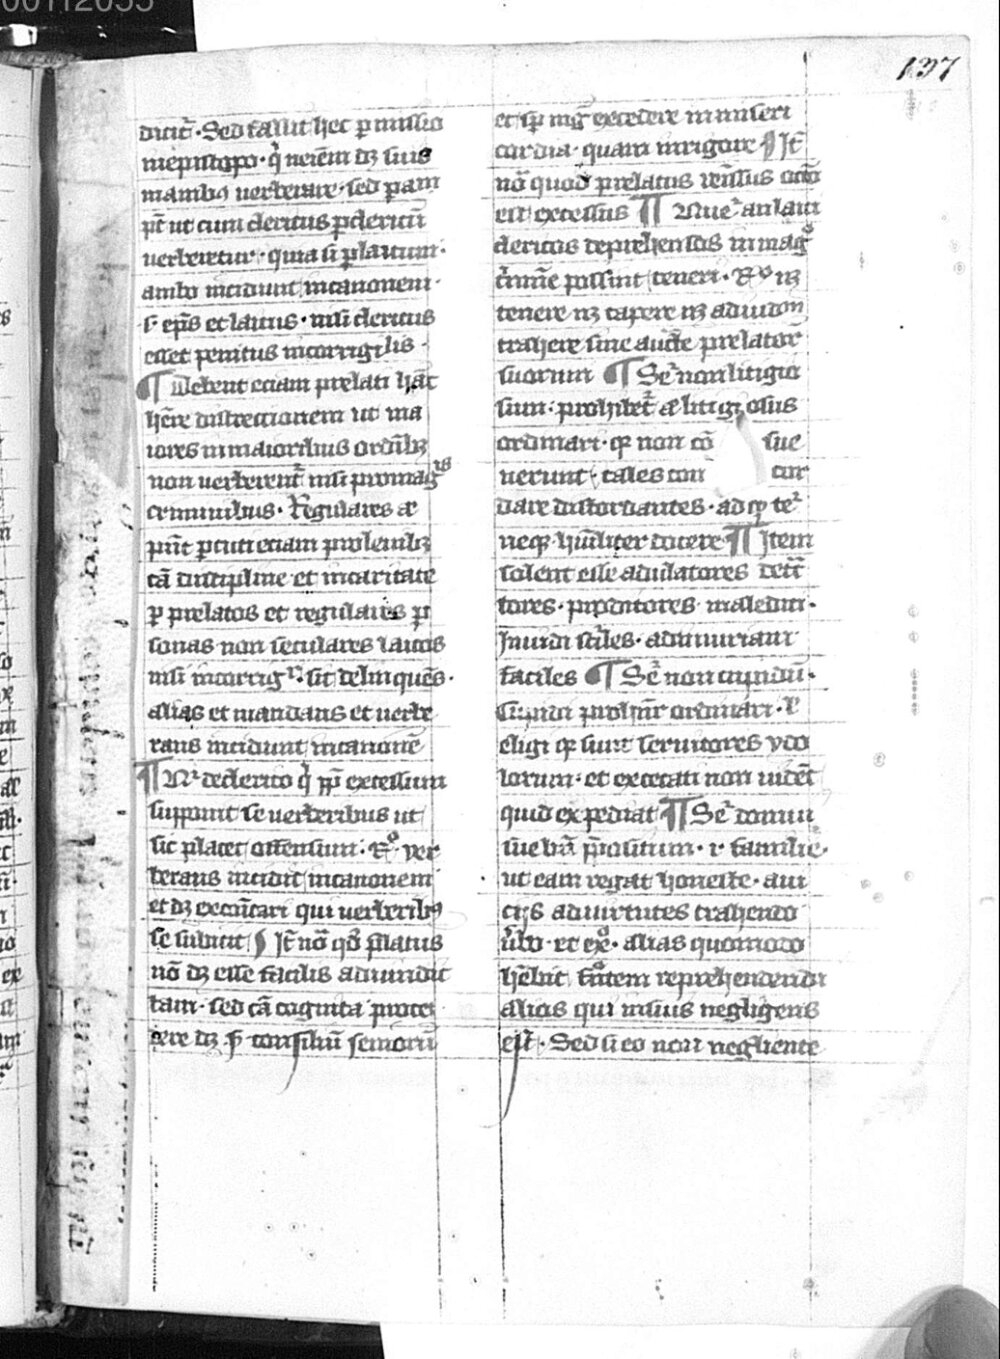 137
dicit̄. Sed fallit hec ꝑmissio
in episcopo. qͥ neīem dꝫ suis
manibꝰ verberare. sed ꝑ am
pt̄ ut cum clericus ꝑ clericū
verberetur. quia si ꝑ laicum.
ambo incidunt in canonem.
s. ep̄s et laicus. nisi clericus
esset penitus incorrigibilis.
¶ Debent eciam prelati hāc
hēre distreccionem ut ma
iores in maioribus ordībꝫ
non verberent̄ nisi pro magis
criminibus. Regulares
pn̄t ꝑcuti eciam pro leuibꝫ
cā discipline et in caritate
ꝑ prelatos et regulares ꝑ
sonas non seculares laicos
nisi incorrig sit delinquēs.
alias et mandans et verbe
rans incidunt in canonē
¶ Nͬ de clerico qͥ ꝓpͥ excessum
supponit se verberibus ut
sic placet offensum. Rͦ. ver
berans incidit in canonem
et dꝫ excōicari qui verberibꝰ
se subicit ¶ Itē nō qd̄ platus
nō dꝫ esse facilis ad vindic
tam. sed cā cognita proce
dere dꝫ ꝑ consiliū seniorū
et sp̄ magͥ excedere in miseri
cordia. quam in rigore ¶ Itē
nō quod prelatus
est excessus ¶ Nͬ an laici
clericos deprehensos in magͦ
cͥmīe possint teneri. Rͦ nꝫ
tenere nꝫ capere nꝫ ad iudicm̄
trahere sine auctͤ prelatoꝝ
suorum ¶ Seͬ non litigio
sum. prohibet̄ litigiosus
ordinari. qꝫ non cō sue
nerunt. tales con cor
dare discordantes. ad qꝫ teͬ
neqꝫ huīliter docere ¶ Item
solent esse adulatores detͣc
tores. proditores. maledici.
Inuidi sciles. ad iniuriam
faciles ¶ Seͬ non cupidū.
Cupidi prohibēr ordinari. ł
eligi qꝫ sunt seruitores ydo
lorum. et excecati non videt̄
quid expediat ¶ Seͬ domui
sue bn̄ p̄positum. i. familie.
ut eam regat honeste. a vi
cijs ad virtutes trahendo
vͦbo et exͦ. alias quomodo
hēbit frōtem reprehendendi
alios qui in suis negligens
est. Sed si eo non negliente